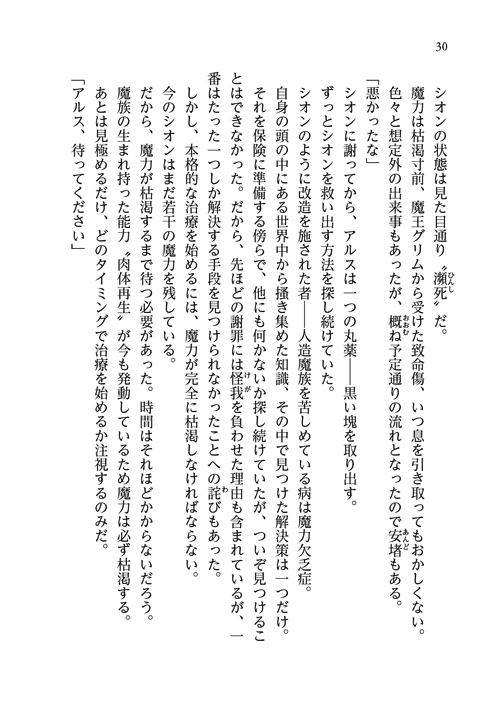 30
シオンの状態は見た目通り〝瀕死〟だ。
魔力は枯渇寸前、魔王グリムから受けた致命傷、いつ息を引き取ってもおかしくない。
色々と想定外の出来事もあったが、概ね予定通りの流れとなったので安堵もある。
「悪かったな」
シオンに謝ってから、アルスは一つの丸薬――黒い塊を取り出す。
ずっとシオンを救い出す方法を探し続けていた。
シオンのように改造を施された者――人造魔族を苦しめている病は魔力欠乏症。
自身の頭の中にある世界中から掻き集めた知識、その中で見つけた解決策は一つだけ。
それを保険に準備する傍らで、他にも何かないか探し続けていたが、ついぞ見つけるこ
とはできなかった。だから、先ほどの謝罪には怪我を負わせた理由も含まれているが、一
番はたった一つしか解決する手段を見つけられなかったことへの詫びもあった。
しかし、本格的な治療を始めるには、魔力が完全に枯渇しなければならない。
今のシオンはまだ若干の魔力を残している。
だから、魔力が枯渇するまで待つ必要があった。時間はそれほどかからないだろう。
魔族の生まれ持った能力〝肉体再生〟が今も発動しているため魔力は必ず枯渇する。
あとは見極めるだけ、どのタイミングで治療を始めるか注視するのみだ。
「アルス、待ってください」